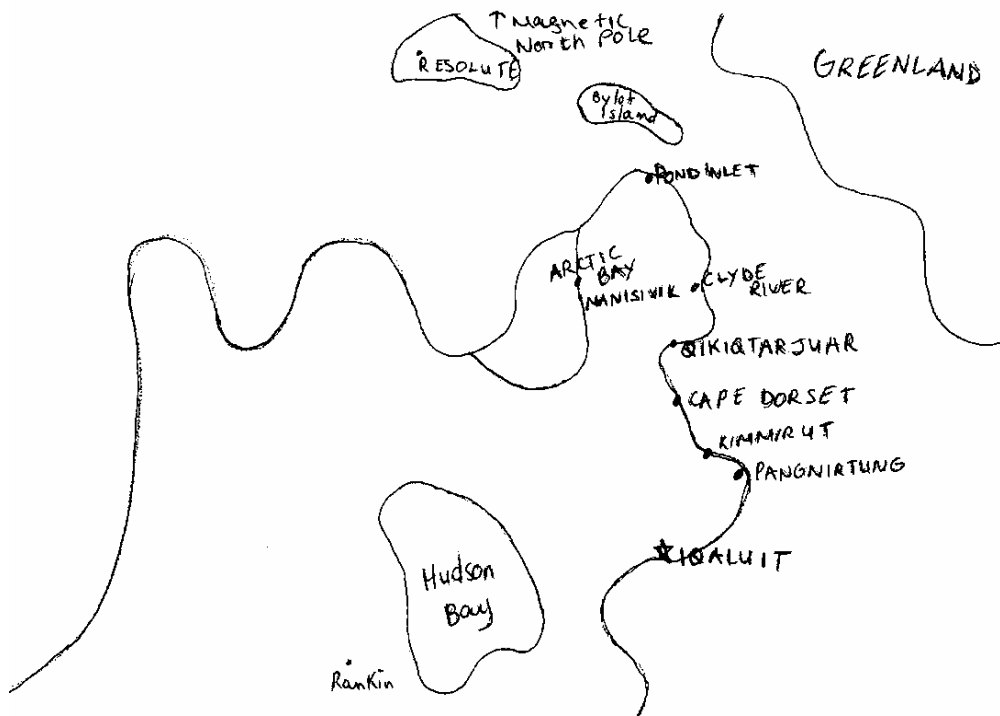 ↑ Magnetic
North Pole
RESOLUTE
GREENLAND
Bylot
Island
POND INLET
ARCTIC
BAY
NANISIVIK
CLYDE
RIVER
QIKIQTARJUAR
CAPE DORSET
KIMMIRUT
PANGNIRTUNG
IQALUIT
Hudson
Bay
Rankin